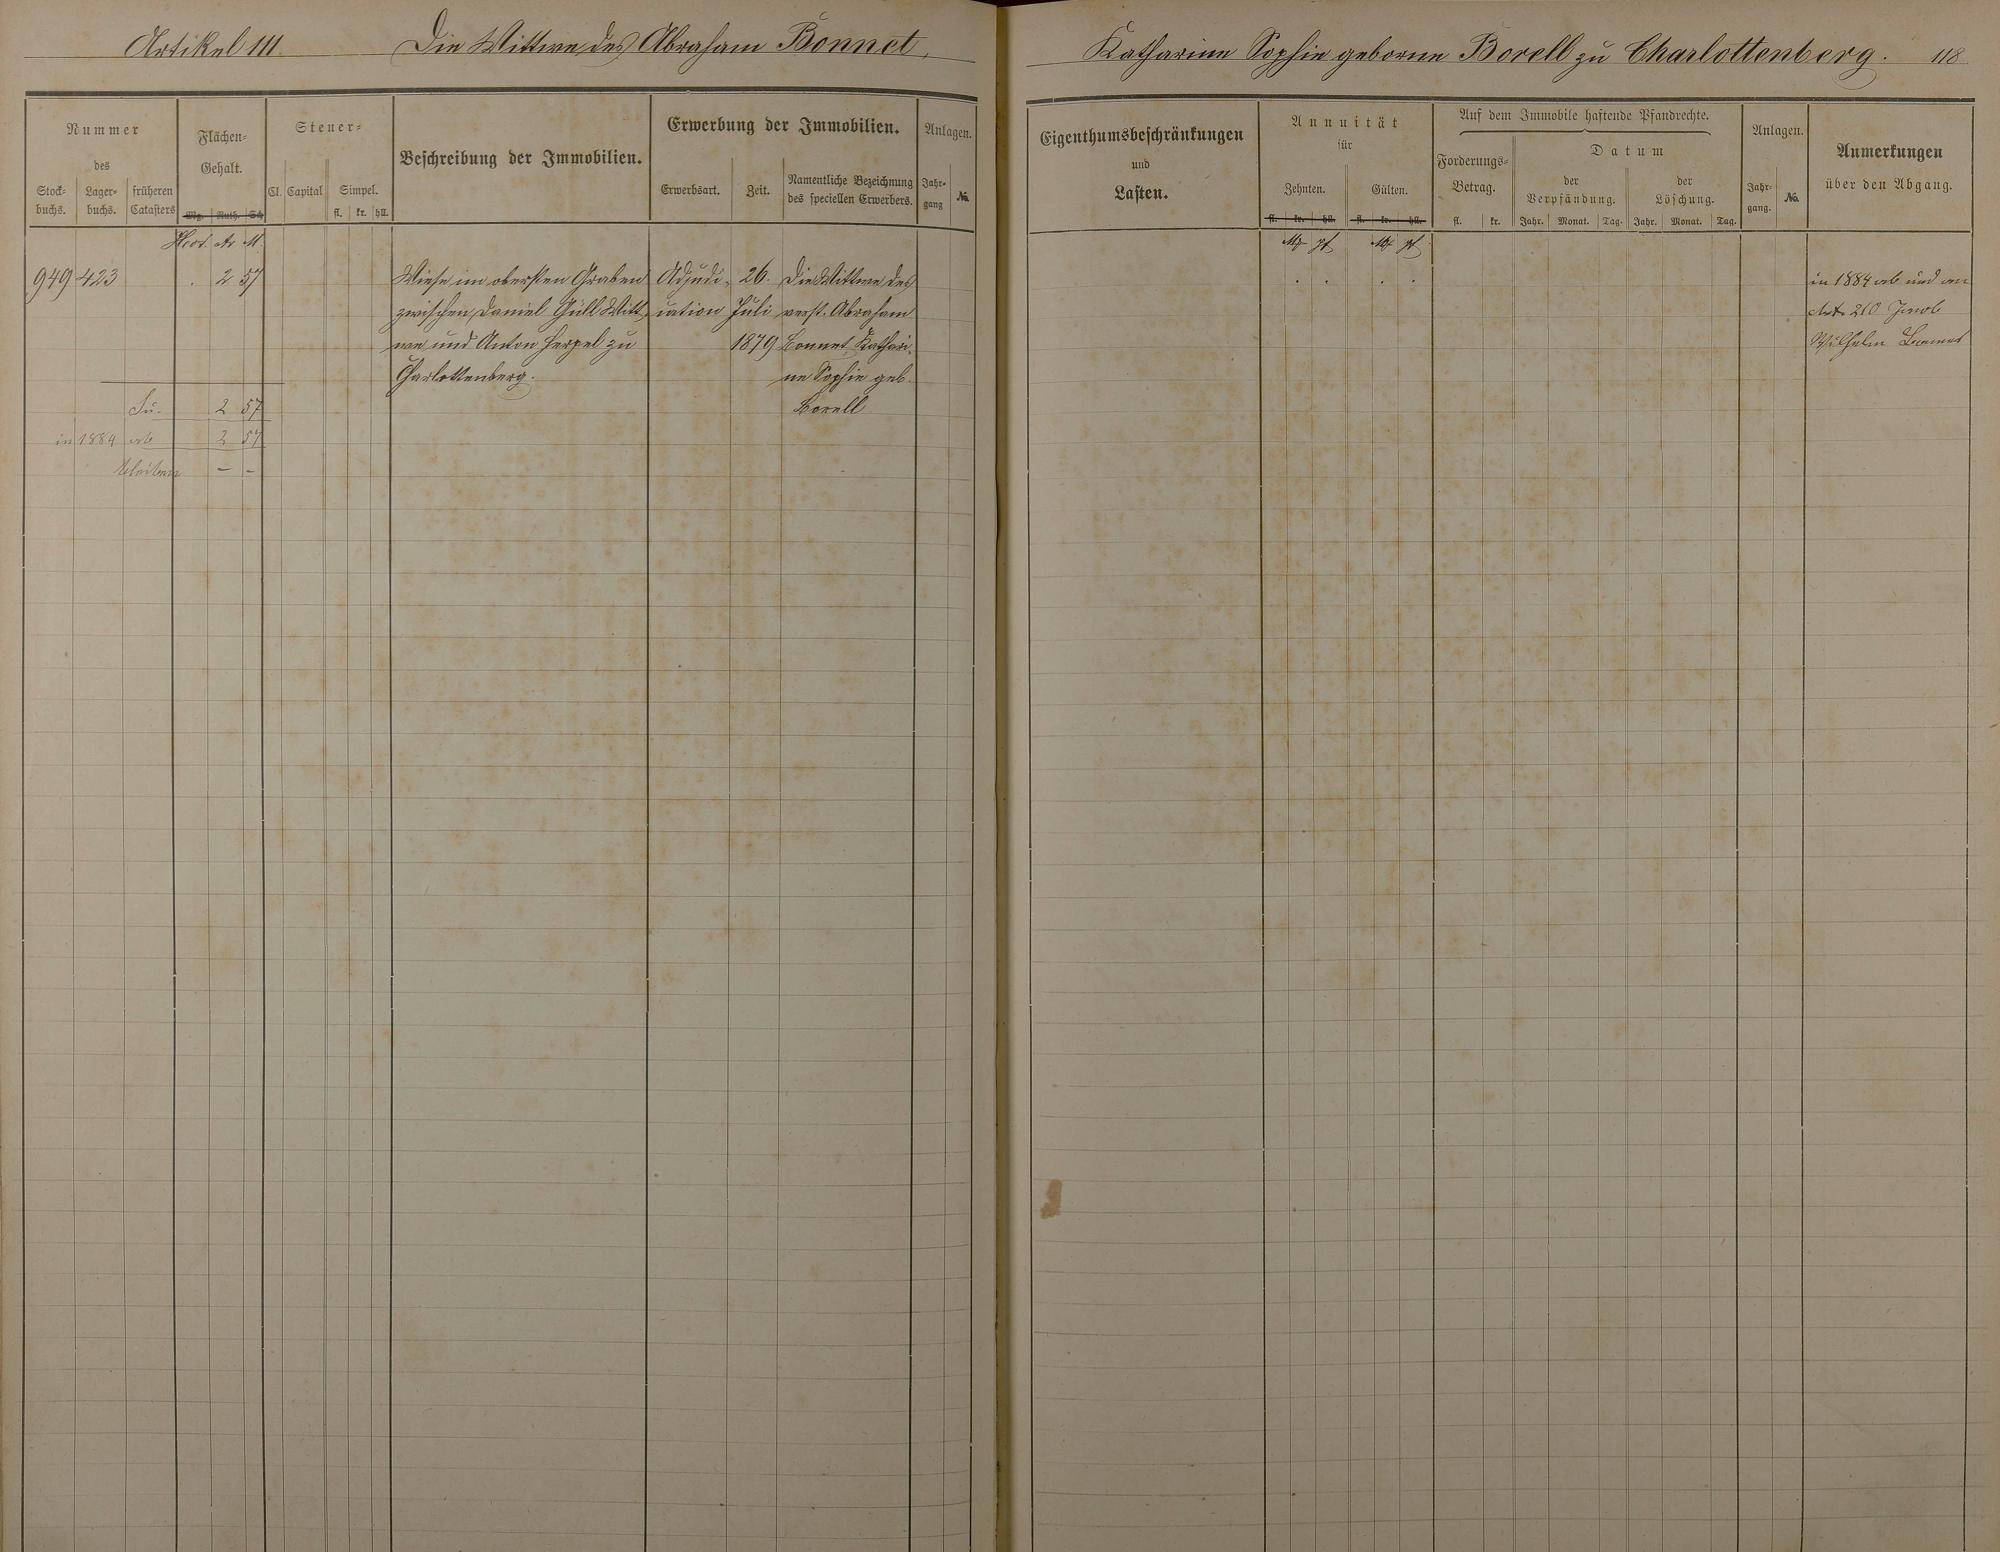 Artikel 111. Die Wittwe des Abraham Bonnet,
Nummer
des
Stock-
buchs.
Lager-
buchs.
früheren
Catasters
Flächen-
Gehalt.
Mg. Ruth. Sch
Steuer-
Cl. Capital Simpel.
fl. kr. hll.
Beschreibung der Immobilien.
Erwerbung der Immobilien.
Erwerbsart. Zeit.
Namentliche Bezeichnung
des speciellen Erwerbers.
Anlagen.
Jahr-
gang
No.
Hect. Ar M.
949 423 . 2 57
Wiese im obersten Graben
zwischen Daniel Güll Witt,
we und Anton Herpel zu
Charlottenberg.
Adjudi-
cation
26.
Juli
1879
Die Wittwe des
verst. Abraham
Bonnet, Kathari-
ne Sophie geb.
Borell
Su. 2 57
in 1884 ab 2 57
bleiben – –
Katharine Sophie geborne Borell zu Charlottenberg. 118
Eigenthumsbeschränkungen
und
Lasten.
Annuität
für
Zehnten. Gülten.
fl. kr. hll. fl. kr. hll.
Auf dem Immobile haftende Pfandrechte.
Forderungs-
Betrag.
fl. kr.
Datum
der
Verpfändung.
Jahr. Monat. Tag.
der
Löschung.
Jahr. Monat. Tag.
Anlagen.
Jahr-
gang.
No.
Anmerkungen
über den Abgang.
Mk pf Mk pf
. . . .
in 1884 ab und an
Art. 210 Jacob
Wilhelm Bonnet